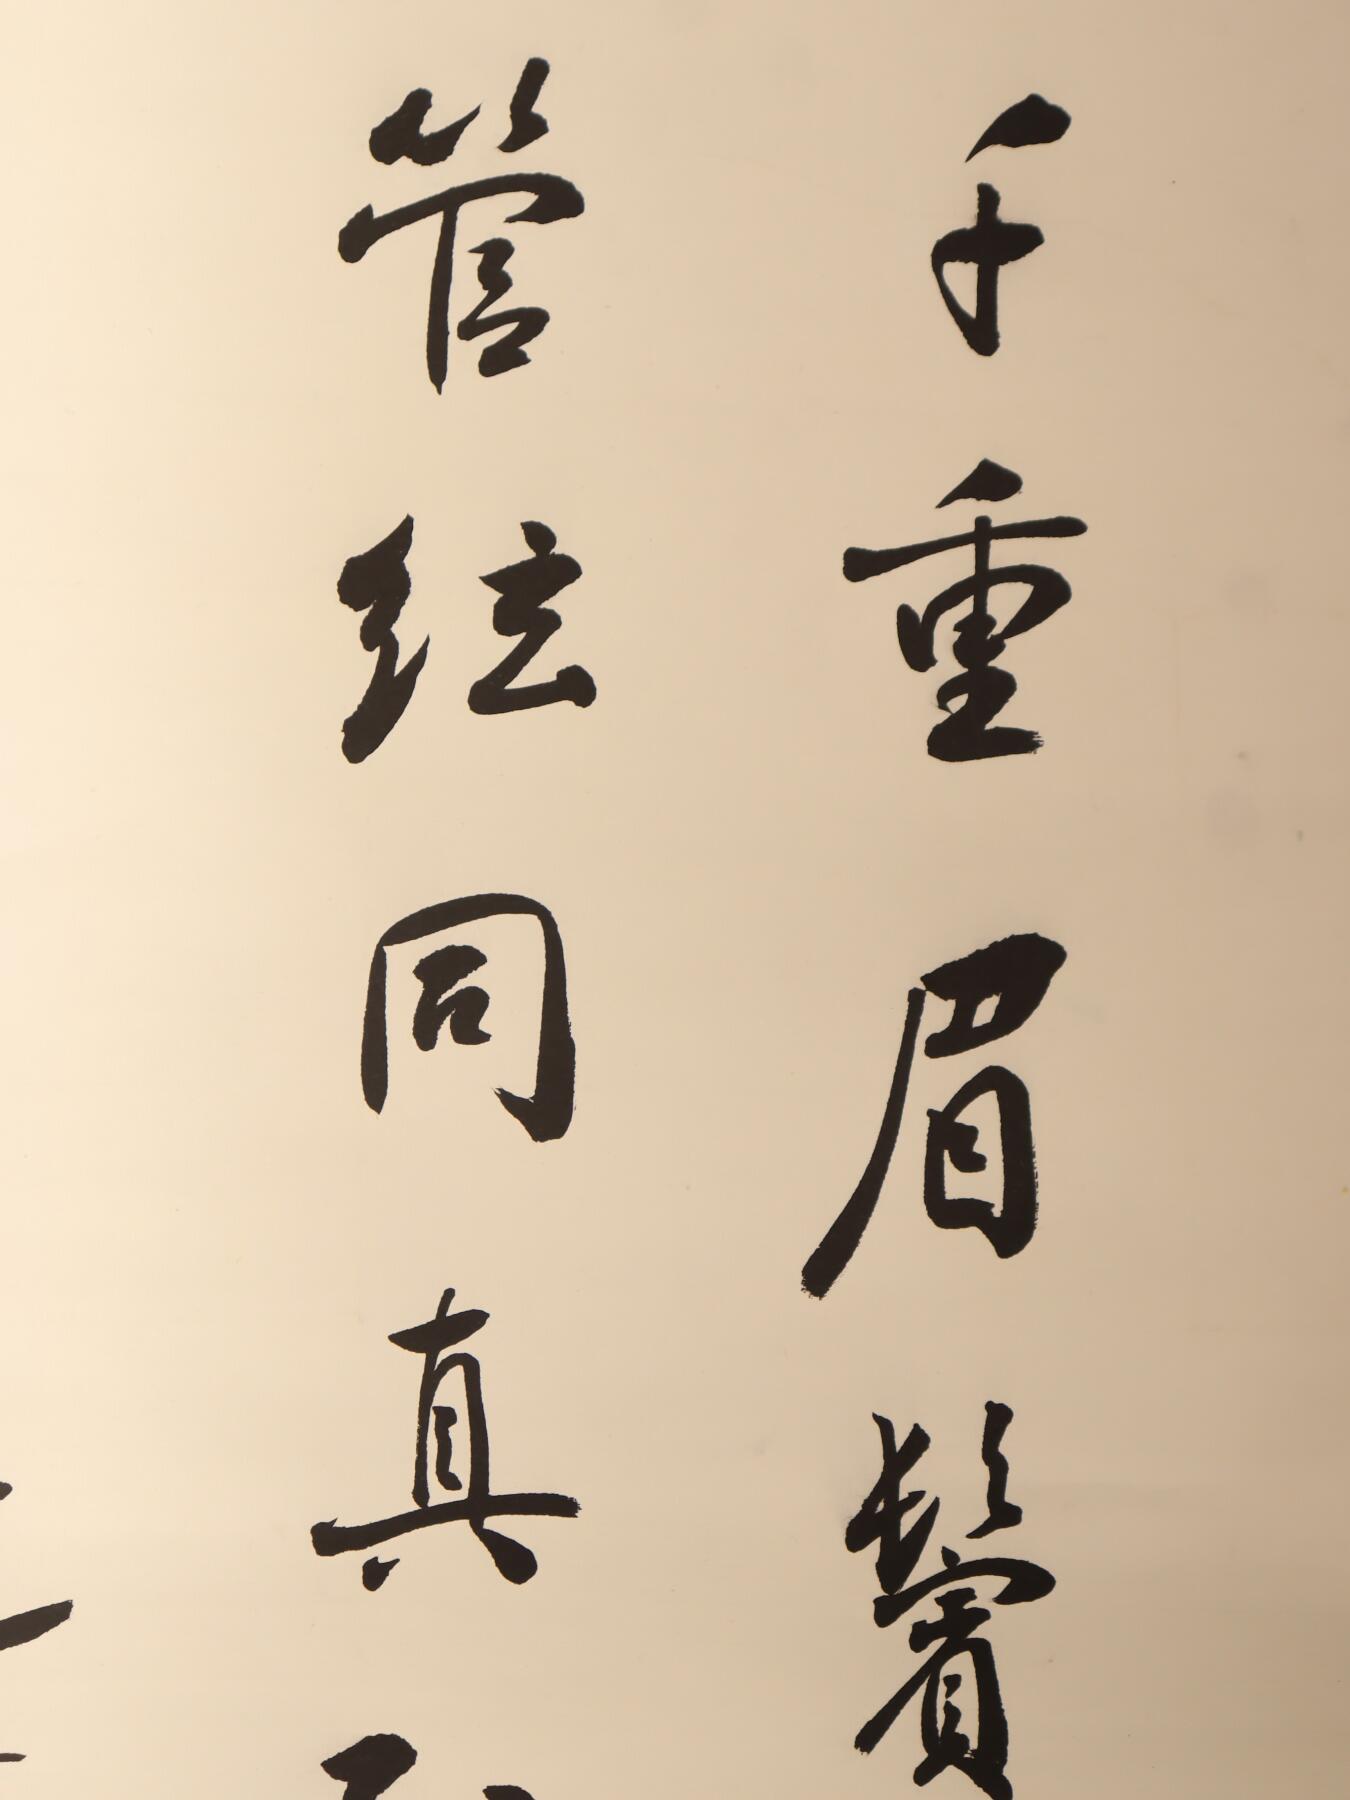 千重眉鬢
管絃同真